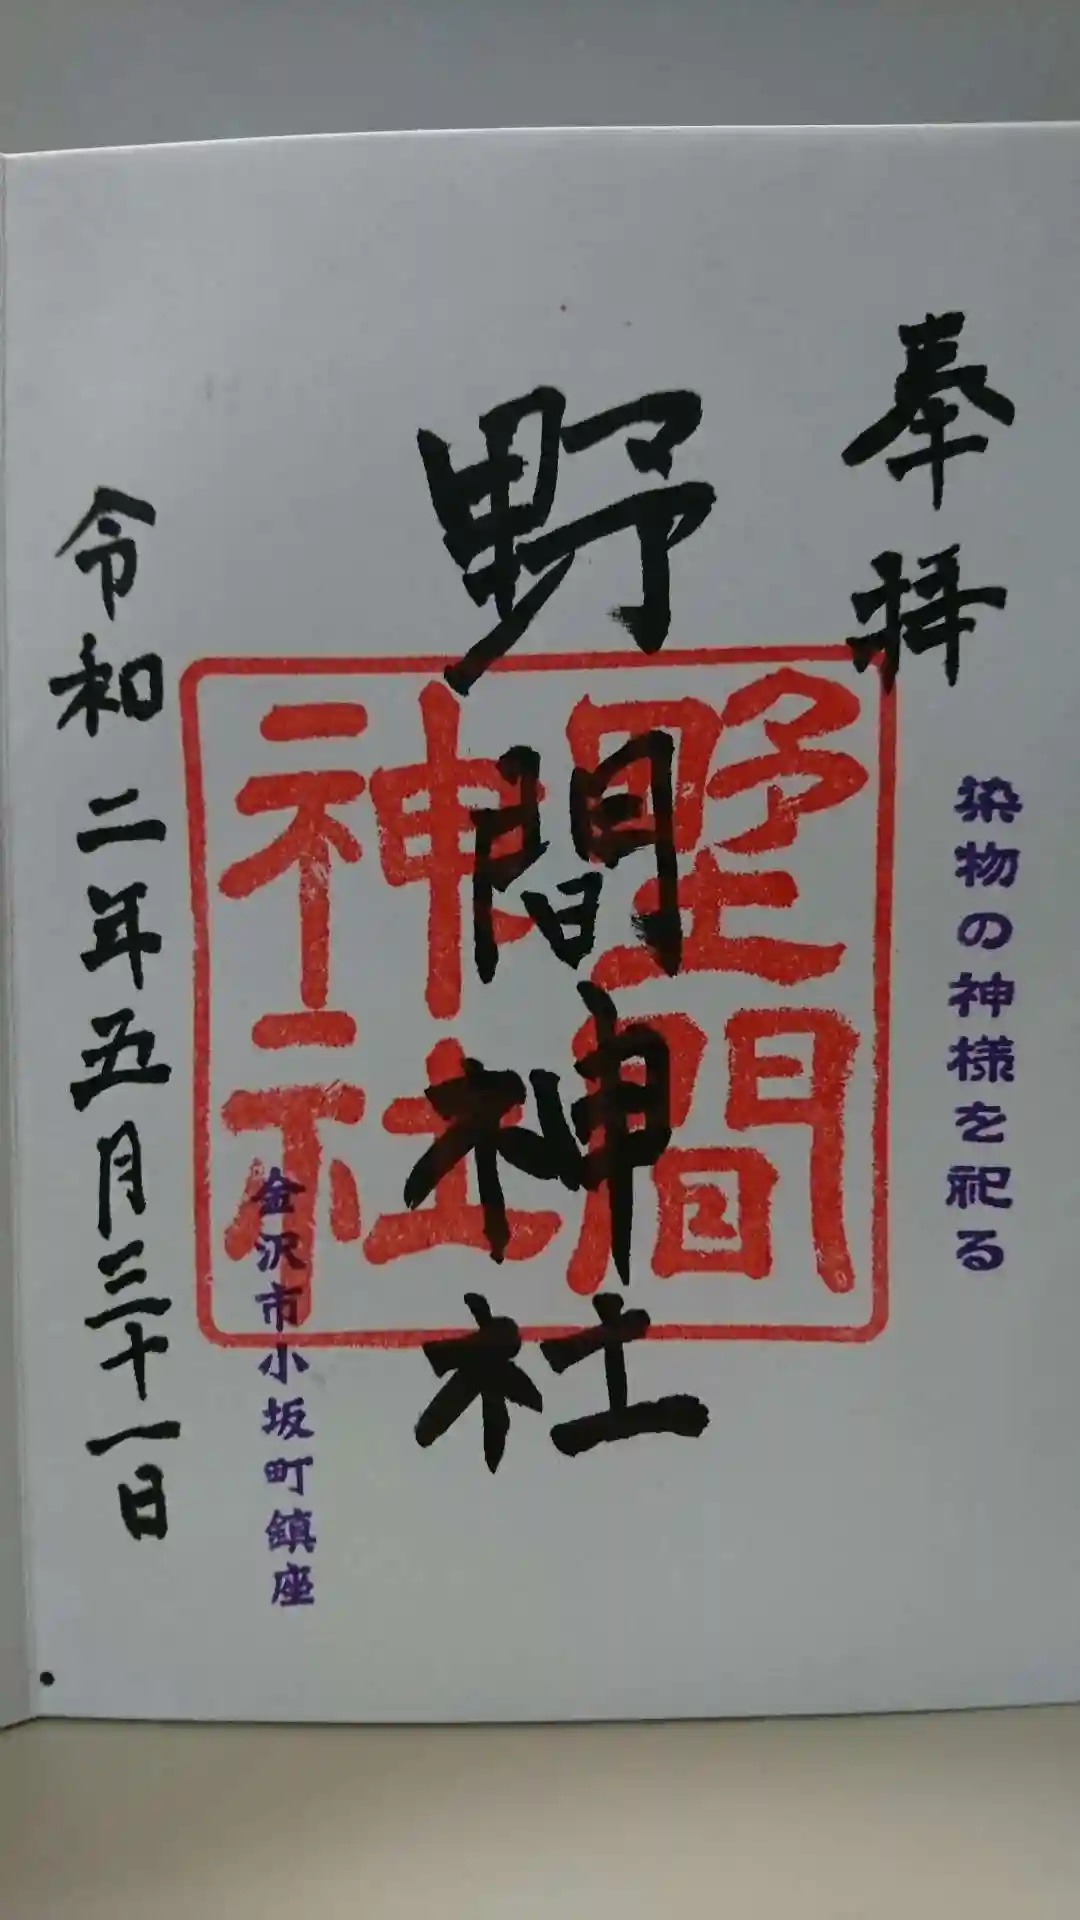 奉拝
染物の神様を祀る
野間神社
野間
神社
金沢市小坂町鎮座
令和二年五月三十一日